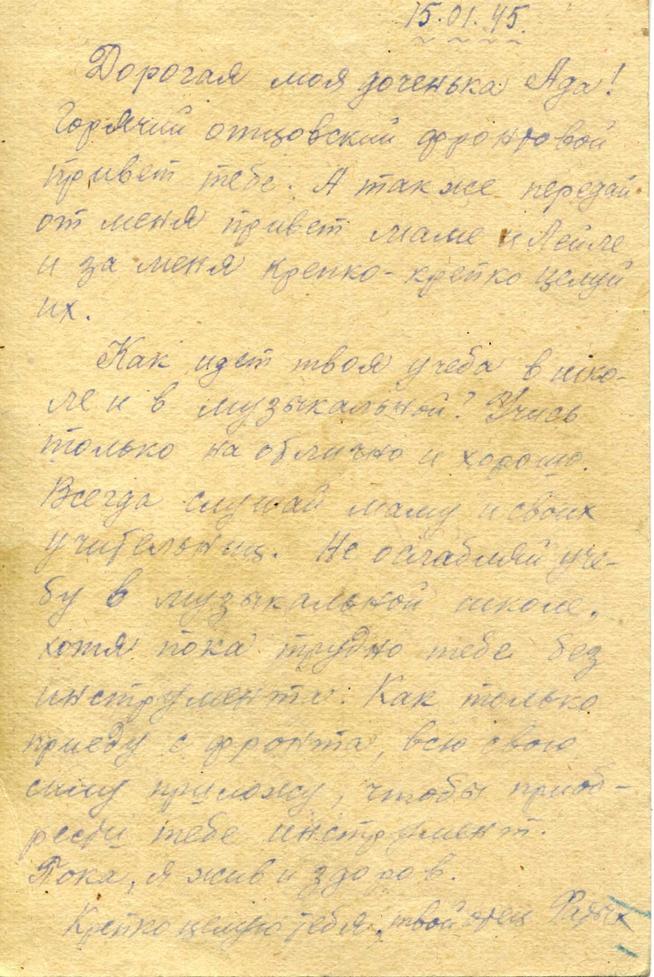 15.01.45.
Дорогая моя доченька Ада!
Горячий отцовский фронтовой
привет тебе. А также передай
от меня привет маме и Лейле
и за меня крепко-крепко целуй
их.
Как идет твоя учеба в шко-
ле и в музыкальной? Учись
только на отлично и хорошо.
Всегда слушай маму и своих
учительниц. Не ослабляй уче-
бу в музыкальной школе,
хотя пока трудно тебе без
инструмента. Как только
приеду с фронта, всю свою
силу приложу, чтобы приоб-
рести тебе инструмент.
Пока, я жив и здоров.
Крепко целую тебя, твой отец